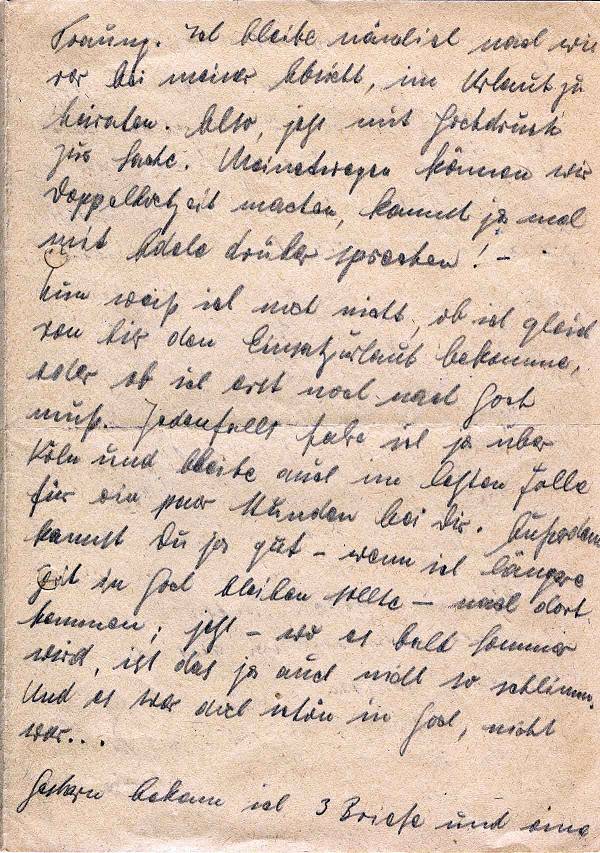 Trauung. Ich bleibe nämlich nach wie
vor bei meiner Absicht, im Urlaub zu
heiraten. Also, jetzt mit Hochdruck
zur Sache. Meinetwegen können wir
Doppelhochzeit machen, kannst ja mal
mit Adele drüber sprechen! –
Nun weiß ich noch nicht, ob ich gleich
von hier den Einsatzurlaub bekomme,
oder ob ich erst noch nach Goch
muß. Jedenfalls fahre ich ja über
Köln und bleibe auch im letzten Falle
für ein paar Stunden bei Dir. Außerdem
kannst Du ja gut – wenn ich längere
Zeit in Goch bleiben sollte – nach dort
kommen; jetzt – wo es bald Sommer
wird, ist das ja auch nicht so schlimm.
Und es war doch schön in Goch, nicht
war...
Gestern bekam ich 3 Briefe und eine